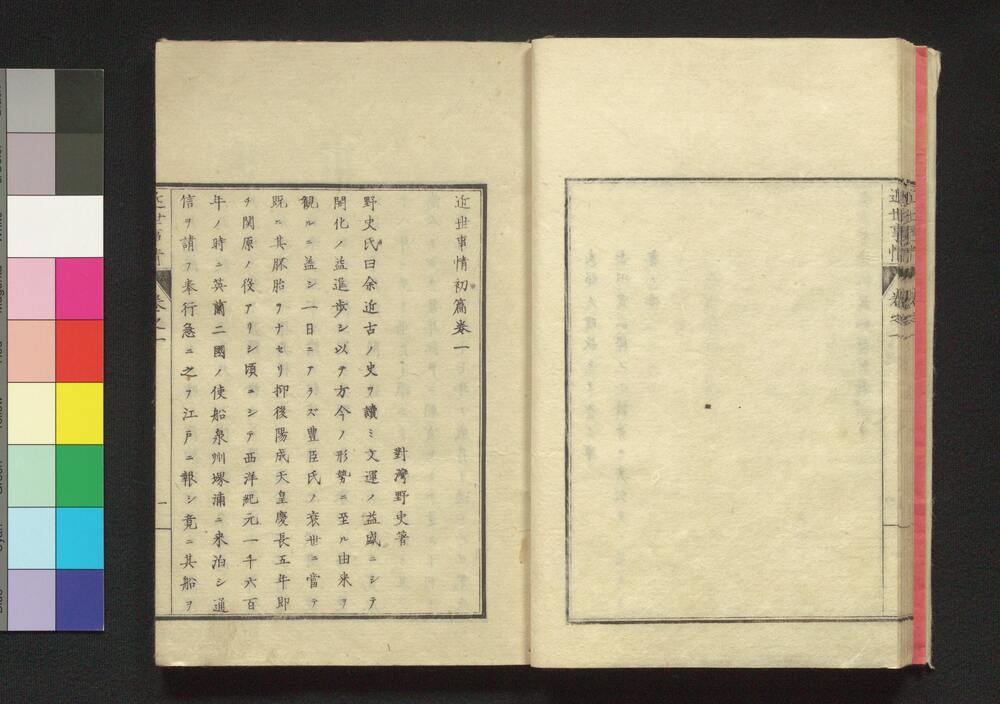 近世事情初篇卷一
對灣野史著
野史氏曰余近古ノ史ヲ讀ミ文運ノ益盛ニシテ
開化ノ益進歩シ以テ方今ノ形勢ニ至ル由来ヲ
觀ルニ益シ一日ニアラズ豊臣氏ノ衰世ニ當テ
既ニ其胚胎ヲナセリ抑後陽成天皇慶長五年即
チ関原ノ役アリシ頃ニシテ西洋紀元一千六百
年ノ時ニ英蘭二國ノ使船泉州堺浦ニ来泊シ通
信ヲ請フ奉行急ニ之ヲ江戸ニ報シ竟ニ其船ヲ
近世事情
卷之一
一
近世事情
卷之一